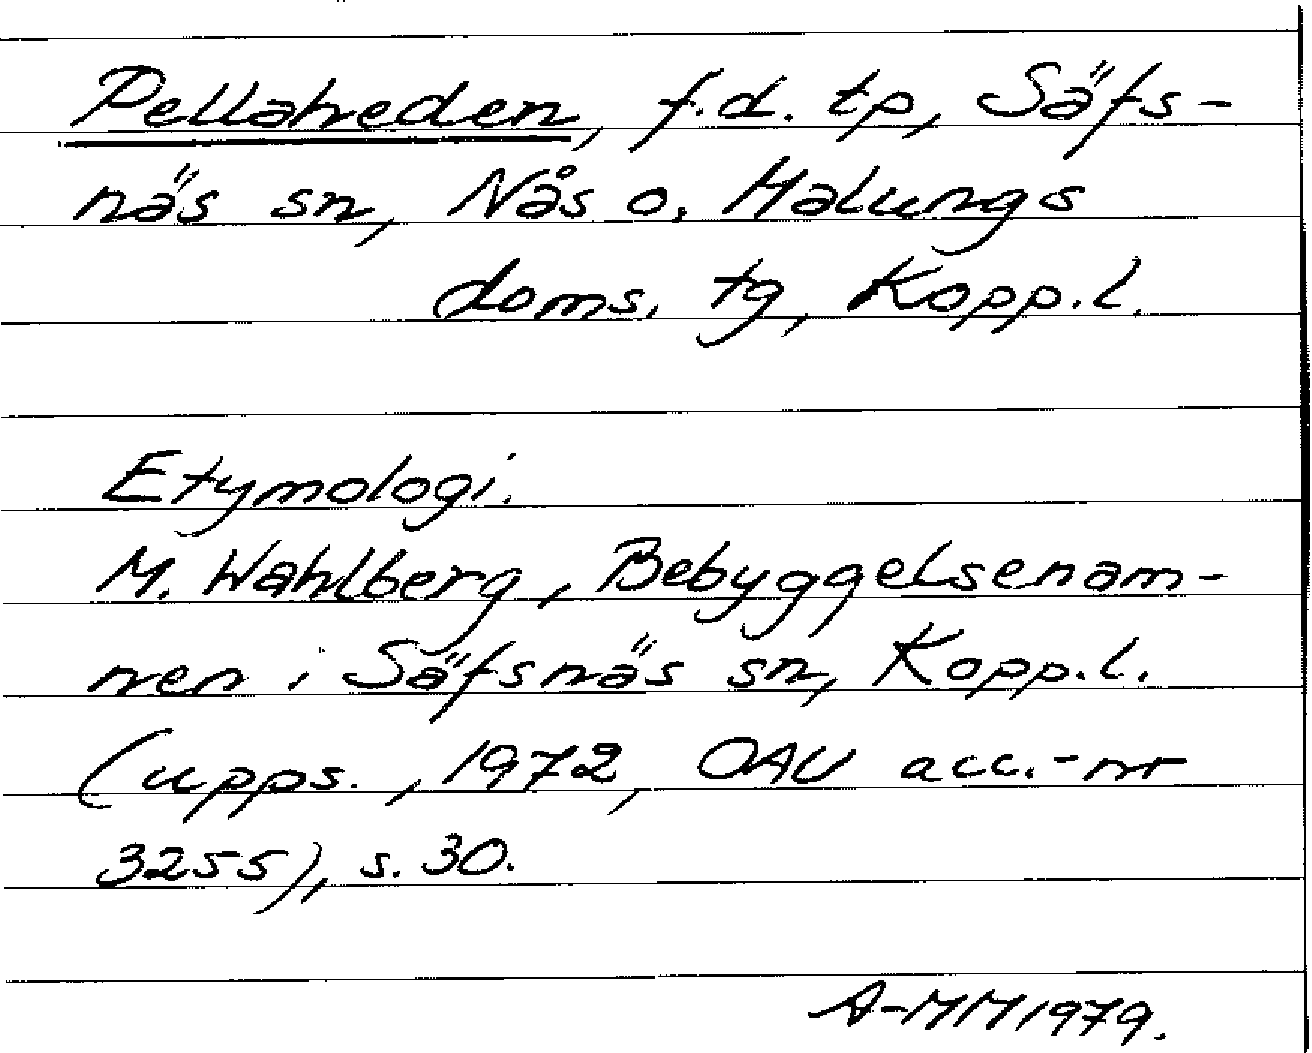 Pellaheden, f.d. tp, Säfs-
näs sn, Nås o. Malungs
doms. tg, Kopp.l.
Etymologi.
M. Wahlberg, Bebyggelsenam-
nen i Säfsnäs sn, Kopp.l.
(upps., 1972, OAU acc.-nr
3255), s. 30.
A-MM 1979.